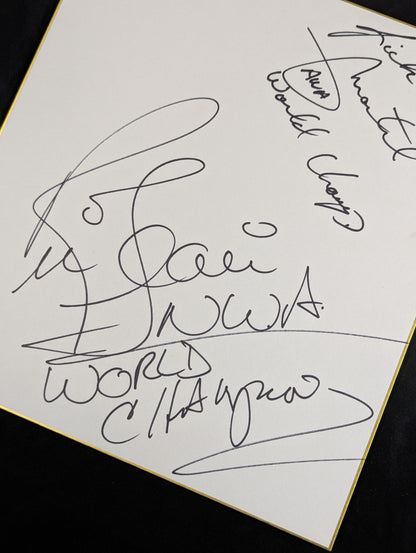 Rick
Martel
AWA
World Champ
Ric Flair
NWA
WORLD
CHAMPION